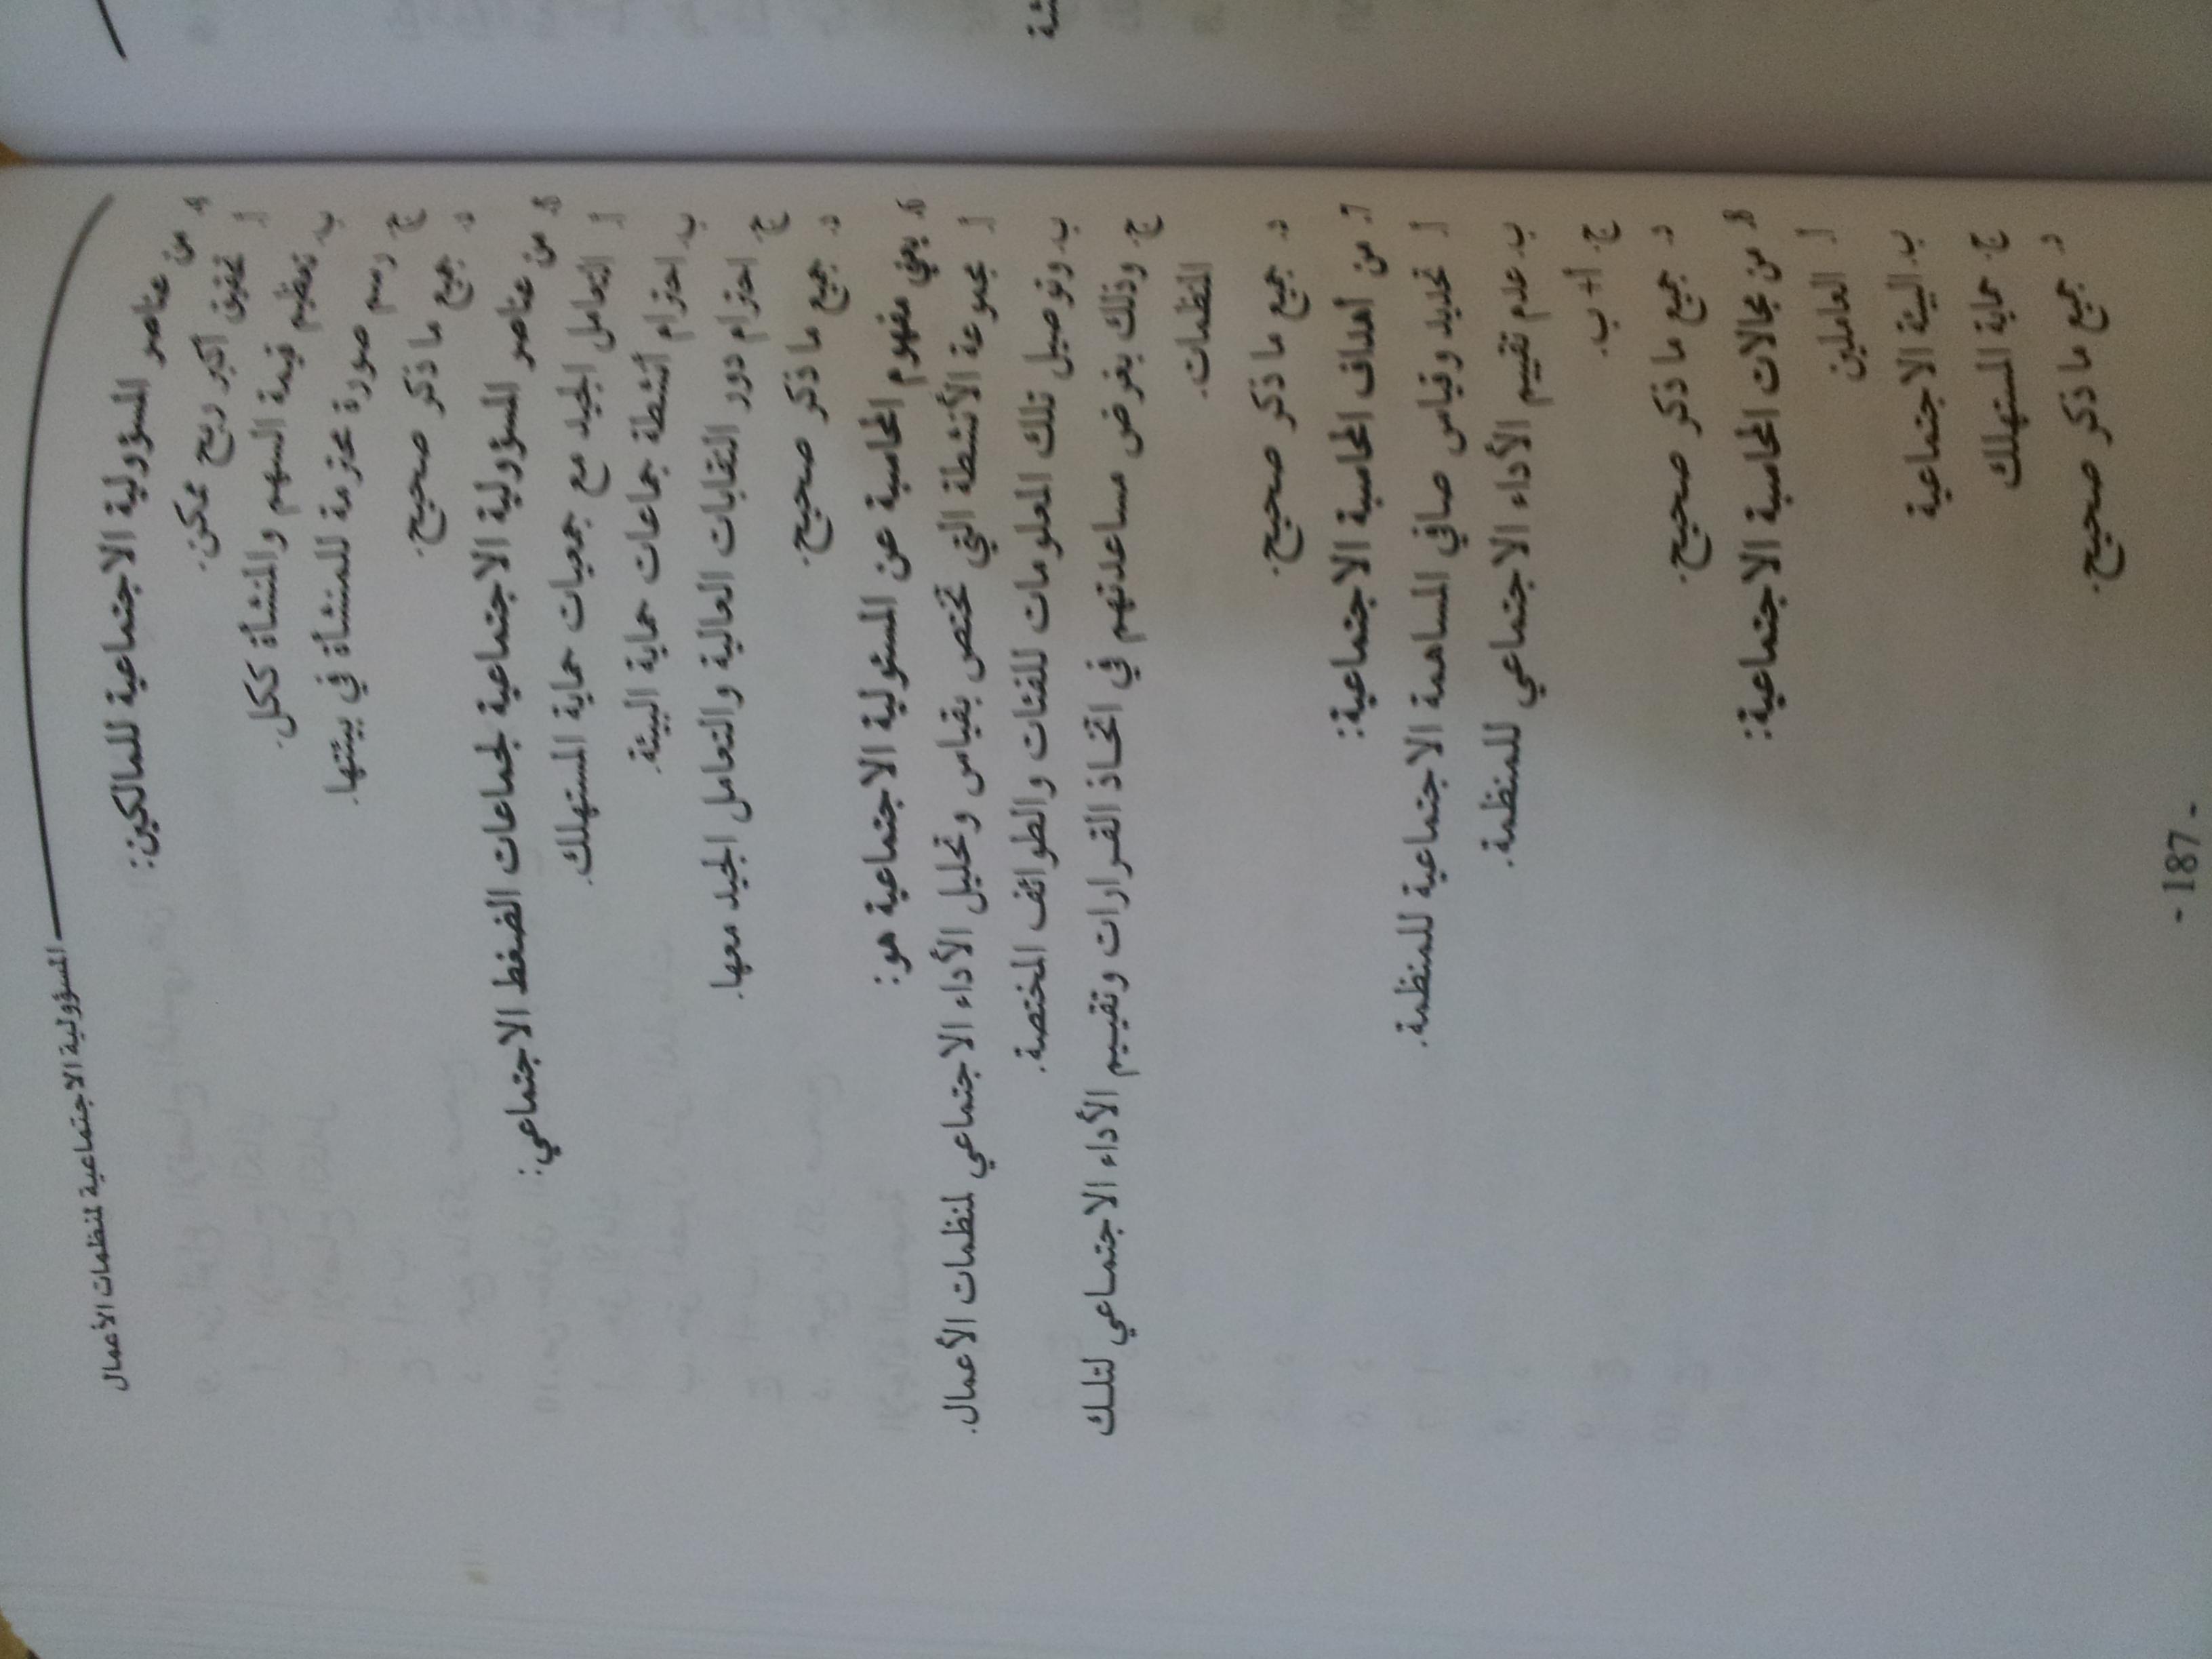 المسؤولية الاجتماعية لمنظمات الأعمال
4. من عناصر المسؤولية الاجتماعية للمالكين:
أ. تحقيق أكبر ربح ممكن.
ب. تعظيم قيمة السهم والمنشأة ككل.
ج. رسم صورة محترمة للمنشأة في بيئتها.
د. جميع ما ذكر صحيح.
5. من عناصر المسؤولية الاجتماعية لجماعات الضغط الاجتماعي:
أ. التعامل الجيد مع جمعيات حماية المستهلك.
ب. احترام أنشطة جماعات حماية البيئة.
ج. احترام دور النقابات العمالية والتعامل الجيد معها.
د. جميع ما ذكر صحيح.
6. يعني مفهوم المحاسبة عن المسئولية الاجتماعية هو:
أ. مجموعة الأنشطة التي تختص بقياس وتحليل الأداء الاجتماعي لمنظمات الأعمال.
ب. وتوصيل تلك المعلومات للفئات والطوائف المختصة.
ج. وذلك بغرض مساعدتهم في اتخاذ القرارات وتقييم الأداء الاجتماعي لتلك
المنظمات.
د. جميع ما ذكر صحيح.
7. من أهداف المحاسبة الاجتماعية:
أ. تحديد وقياس صافي المساهمة الاجتماعية للمنظمة.
ب. عدم تقييم الأداء الاجتماعي للمنظمة.
ج. أ + ب.
د. جميع ما ذكر صحيح.
8. من مجالات المحاسبة الاجتماعية:
أ. العاملين
ب. البيئة الاجتماعية
ج. حماية المستهلك
د. جميع ما ذكر صحيح.
- 187 -